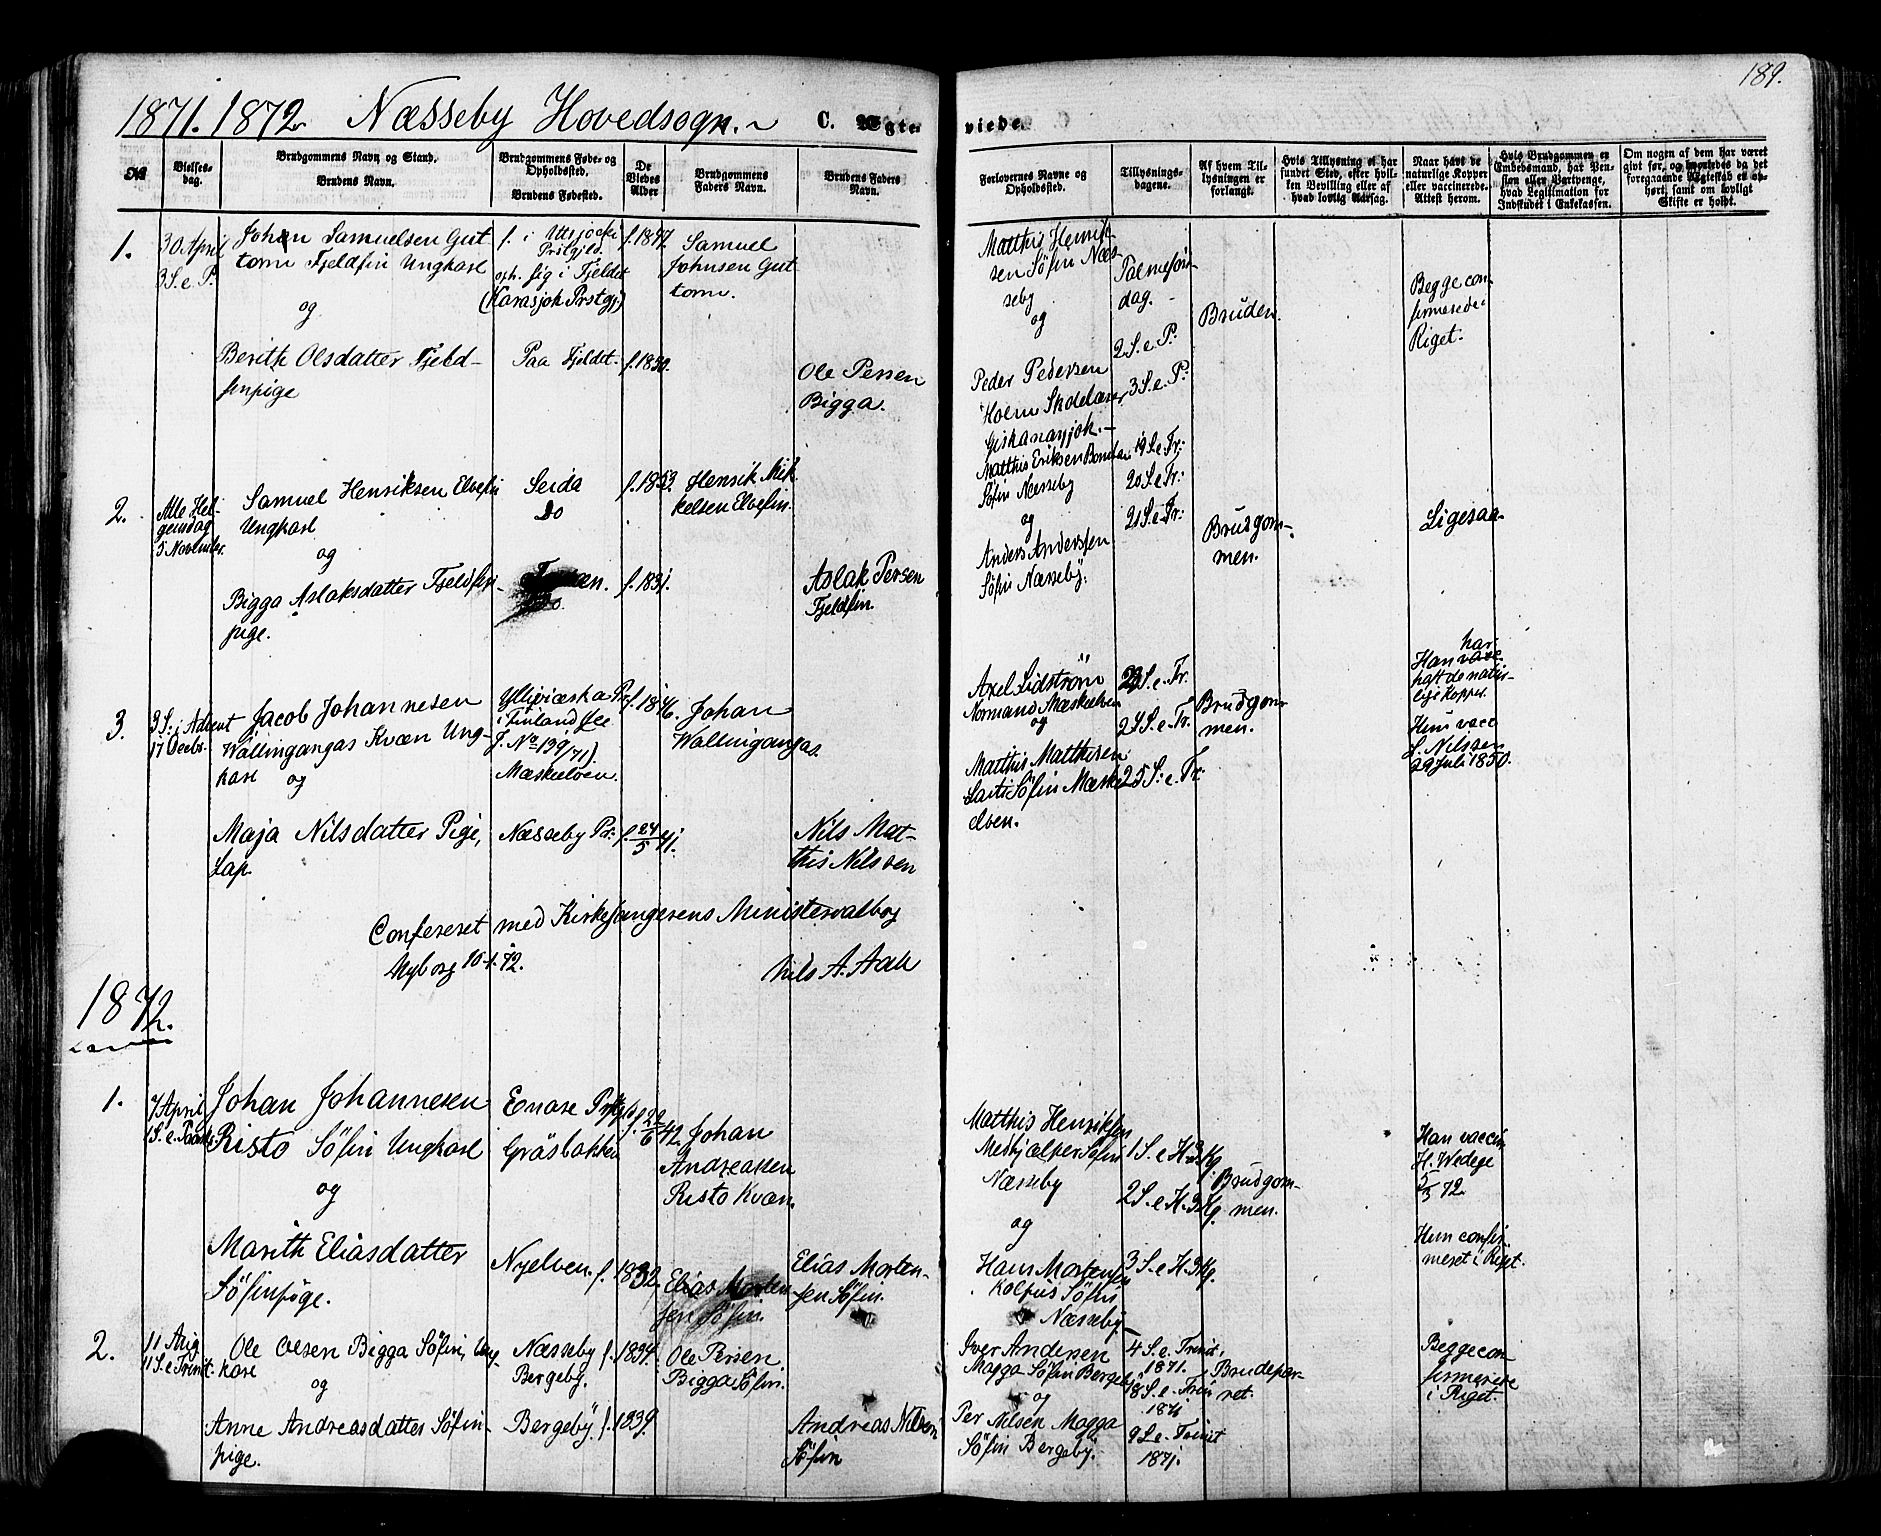 189.
1871. 1872 Næsseby Hovedsogn.
C. Ægte viede.
№
Vielses-
dag.
Brudgommens Navn og Stand.
Brudens Navn.
Brudgommens Føde- og
Opholdssted.
Brudens Fødested.
De
Viedes
Alder
Brudgommens
Faders Navn.
Brudens Faders
Navn.
Forlovernes Navne og
Opholdssted.
Tillysnings-
dagene.
Af hvem Til-
lysningen er
forlangt.
Hvis Tillysning ei har
fundet Sted, efter hvil-
ken Bevilling eller af
hvad lovlig Aarsag.
Naar havt de
naturlige Kopper
eller vaccinerede.
Attest herom.
Hvis Brudgommen er
Embedsmand, har Pen-
sion eller Vartpenge,
hvad Legitimation for
Indskudet i Enkekassen.
Om nogen af dem har været
givt før, og hvorledes da det
foregaaende Ægteskab er op-
hørt, samt om lovligt
Skifte er holdt.
1.
30 April
3 S. e P.
Johan Samuelsen Gut
torm Fjeldfin Ungkarl
og
Berith Olsdatter Fjeld-
finpige
f. i Utsjocki
Prstgjld.
oph. sig i Fjeldet
(Karasjok Prstgj)
Paa Fjeldet.
f. 1847.
f. 1850.
Samuel
Johnsen Gut
torm.
Ole Persen
Bigga.
Matthis Henrik-
sen Söfin Næs-
seby
og
Peder Pedersen
Holm Skolelærer
Palmesön-
dag.
2 S. e. P.
3 S. e. P.
Bruden.
Begge con-
firmerede i
Riget.
2.
Alle Hel-
gensdag
5 November
Samuel Henriksen Elvefin
Ungkarl
og
Bigga Aslaksdatter Fjeldfin-
pige.
Seida
Do
f. 1853.
f. 1851.
Henrik Mik
kelsen Elvefin.
Aslak Persen
Fjeldfin.
Matthis Eriksen
Söfin Næsseby
og
Anders Anderssen
Söfin Næsseby.
19 S. e. Tr:
20 S. e Tr:
21 S. e. Tr:
Brudgom-
men.
Ligesaa
3.
3 S. i Advent
17 Decbr.
Jacob Johannesen
Wallingangas Kvæn Ung-
karl og
Maja Nilsdatter Pige,
Lap.
i Finland see
J. No 139/71).
Mæskelven.
Næsseby Pr:
f. 1846.
f. 24/5 41.
Johan
Wallingangas.
Nils Mat-
this Nilssen
Axel Lidström
Normand Mæskelven
og
Matthis Mathisen
Laiti Söfin Mæsk
elven.
23 S. e. Tr.
24 S. e. Tr.
25 S. e. Tr:
Brudgom
men.
har
Han
haft de natur-
lige Kopper.
Hun vacc
S. Nilssen
29 Juli 1850.
Confereret med Kirkesangerens Ministerialbog
Nyborg 10-1.72.
Nils A. Aall
1872.
1.
7 April
1 S. e. Paaske
Johan Johannesen
Risto Söfin Ungkarl
og
Marith Eliasdatter
Söfinpige.
Enare Prstgld
Gräsbakken
Nyelven.
f. 29/6 42.
f. 1832.
Johan
Andreassen
Risto Kvæn.
Elias Morten-
sen Söfin.
Elias Morten-
sen Söfin.
Matthis Henriksen
Medhjælper Söfin
Næsseby
og
Hans Mortensen
Kolpus Söfin
Næsseby
1 S. e H. 3 Kg
2 S. e H. 3 Kg.
3 S. e H. 3 Kg.
Brudgom-
men.
Han vaccin
H. Wedege
5/3 72.
Hun confir-
meret i Riget.
2.
11 Aug.
11 S. e Trinit.
Ole Olsen Bigga Söfin, Ung-
karl
og
Anne Andreasdatter Söfin-
pige.
Næsseby
Bergeby.
Bergeby.
f. 1834.
f. 1839.
Ole Persen
Bigga Söfin.
Andreas Nilsen
Söfin
Iver Andersen
Magga Söfin Bergeby
og
Per Nilsen Magga
Söfin Bergeby.
4 S. e. Trinit.
1871.
8 S. e. Trin
1871
9 S. e. Trinit
1871.
Brudepar-
ret.
Begge con
firmerede
i Riget.